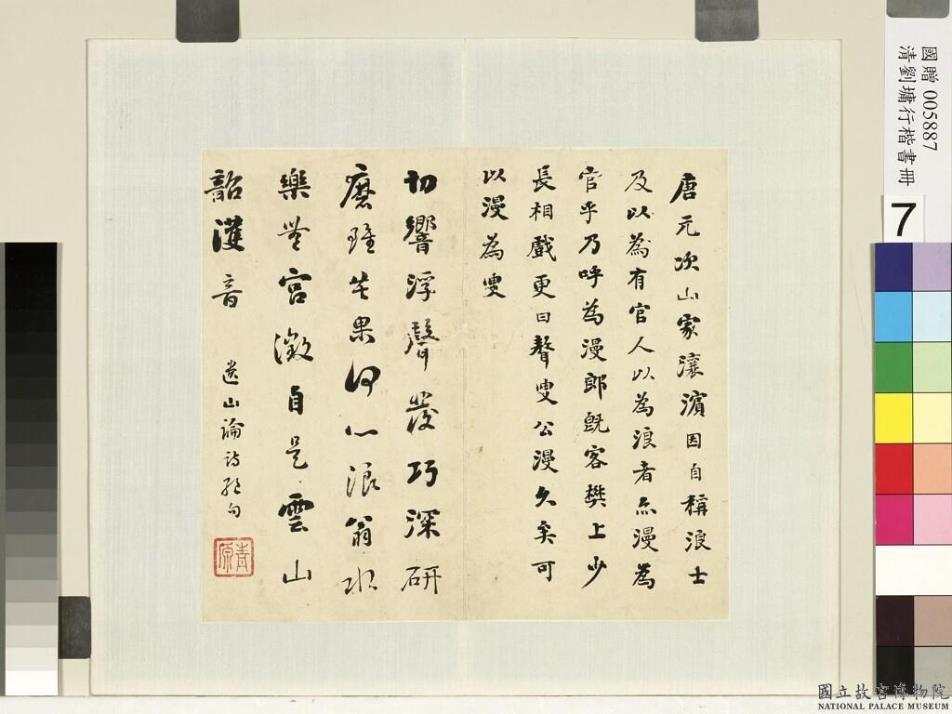 唐元次山家瀼濱因自稱浪士
及以為有官人以為浪者亦漫為
官乎乃呼為漫郎既客樊上少
長相戲更曰聱叟公漫久矣可
以漫為叟
切響浮聲發巧深研
磨雖苦果何心浪翁水
樂無宮徵自是雲山
韶濩音
遺山論詩絕句
青原
國贈 005887
清劉墉行楷書冊
7
國立故宮博物院
NATIONAL PALACE MUSEUM